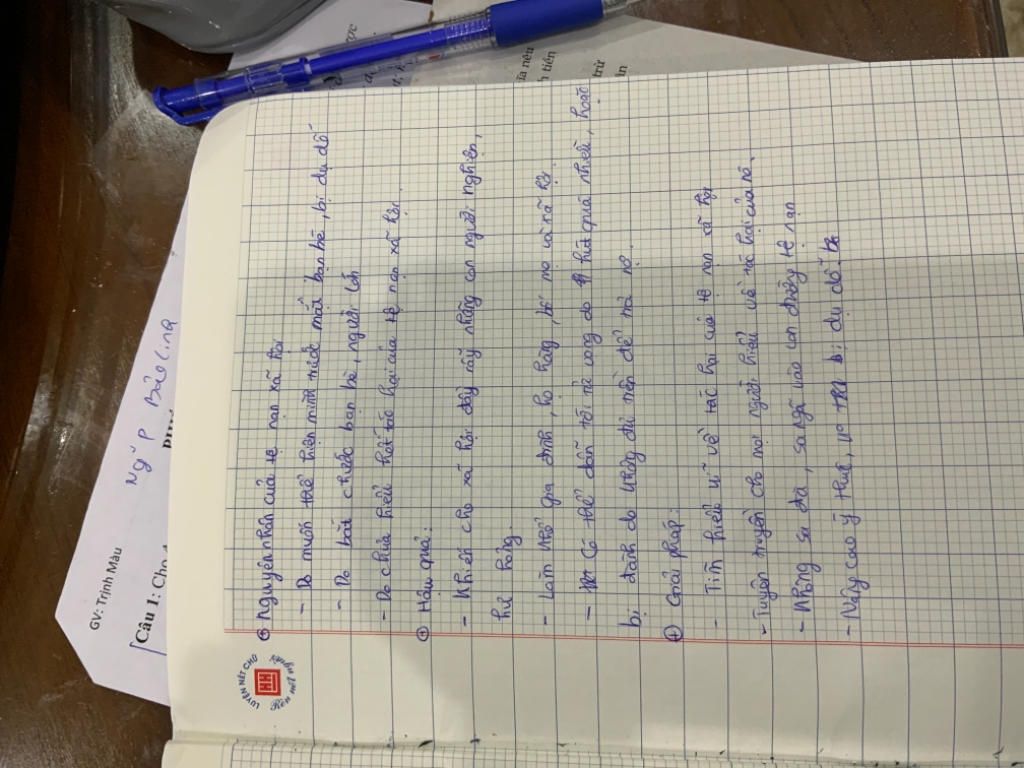 GV: Trịnh Màu
Ngữ P Bảo Linh
Câu 1: Cho
LUYỆN NÉT CHỮ
Rèn nết người
HH
⊕ Nguyên nhân của tệ nạn xã hội
- Do muốn thể hiện mình trước mắt bạn bè, bị dụ dỗ
- Do bắt chước bạn bè, người lớn
- Do chưa hiểu hết tác hại của tệ nạn xã hội.
⊕ Hậu quả:
- Khiến cho xã hội đầy rẫy những con người nghiện,
hư hỏng.
- Làm khổ gia đình, họ hàng, bố mẹ và xã hội.
- Có thể dẫn tới tử vong do hút quá nhiều, hoặc
bị đánh do không đủ tiền để trả nợ.
⊕ Giải pháp:
- Tìm hiểu kĩ về tác hại của tệ nạn xã hội
- Tuyên truyền cho mọi người hiểu về tác hại của nó.
- Không sa đà, sa ngã vào con đường tệ nạn
- Nâng cao ý thức, ko bị dụ dỗ.